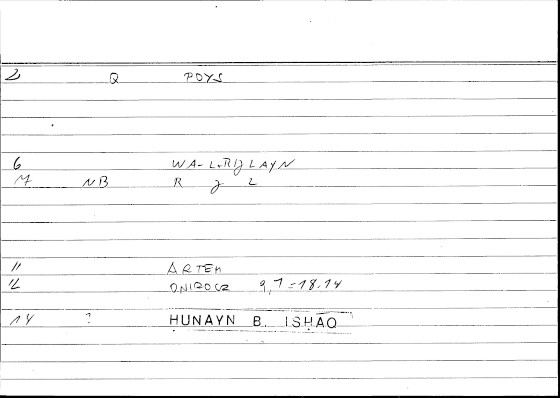 2 Q POYS
6 WA-L-RIJLAYN
M NB R J L
11 ARTEM
12 ONIROCR 9,7 = 18.14
14 ? HUNAYN B. ISHAQ